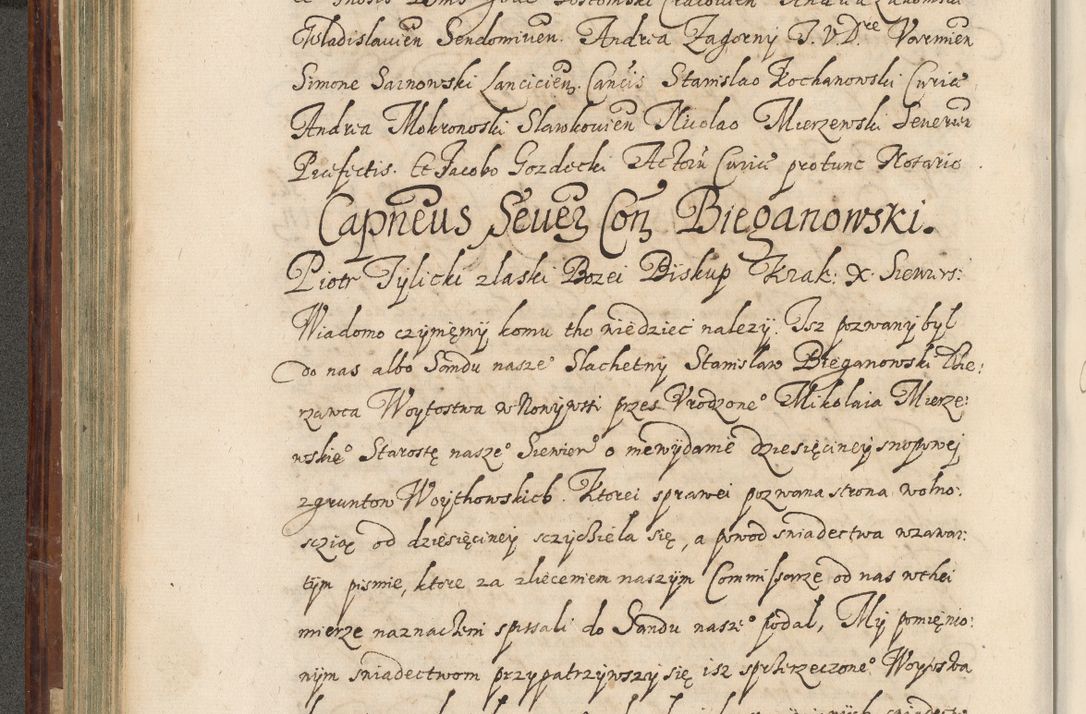 Wladislavien Sendomirien. Andrea Zagorny I. V. Dre Varmien
Simone Sarnowski Lancicien. Cancis Stanislao Kochanowski Curiæ
Andrea Mokronoski Slawkovien Nicolao Mierzewski Severien
Præfectis. Et Jacobo Gozdecki Actorū Curiæ protunc Notario.
Capneus Seueñ Coñ Bieganowski.
Piotr Tylicki z laski Bozei Biskup Krak: X. Siewirs:
Wiadomo czynięmy komu tho wiedziec nalezy. Isz pozwany był
do nas albo Sandu nasze° Slachetny Stanislaw Bieganowski Dzie:
rzawca Woytostwa w Nowywsi przes Vrodzone° Mikolaia Mierze:
wskie° Starostę nasze° Siewier° o niewydanie dziesięciney snopowej
z gruntow Woythowskich. Ktorei sprawei pozwana strona wolno:
scziąx od dziesięciney sczyciela się, a powod sniadectwa w zawar:
tym pismie, ktore za zlieceniem naszym Commissarze od nas w thei
mierze naznaczeni spissali do Sandu nasze° podal, My pomięnio:
nym sniadectwom przypatrzywszy się isz spckrzeczone° Woytostwa